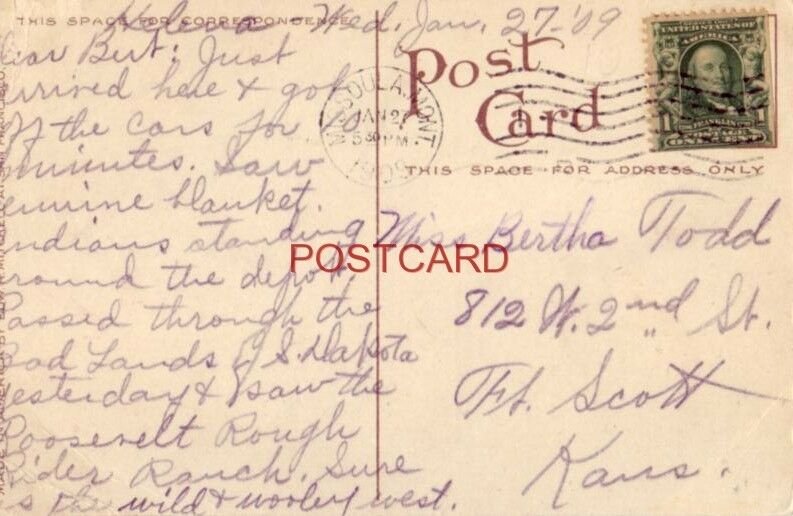 THIS SPACE FOR CORRESPONDENCE
Helena Wed, Jan. 27-'09
ear Bert: Just
rrived here & got
ff the cars for
minutes. Saw
enuine blanket
ndians standing
round the depot.
assed through the
ad Lands S. Dakota
yesterday & saw the
Roosevelt Rough
Rider Ranch. Sure
s the wild & wooley west.
Post
Card
THIS SPACE FOR ADDRESS ONLY
MISSOULA, MONT.
JAN 27
530 PM
1909
UNITED STATES OF
AMERICA
1 FRANKLIN 1
ONE CENT
Miss Bertha Todd
812 W. 2nd St.
Ft. Scott
Kans.
POSTCARD